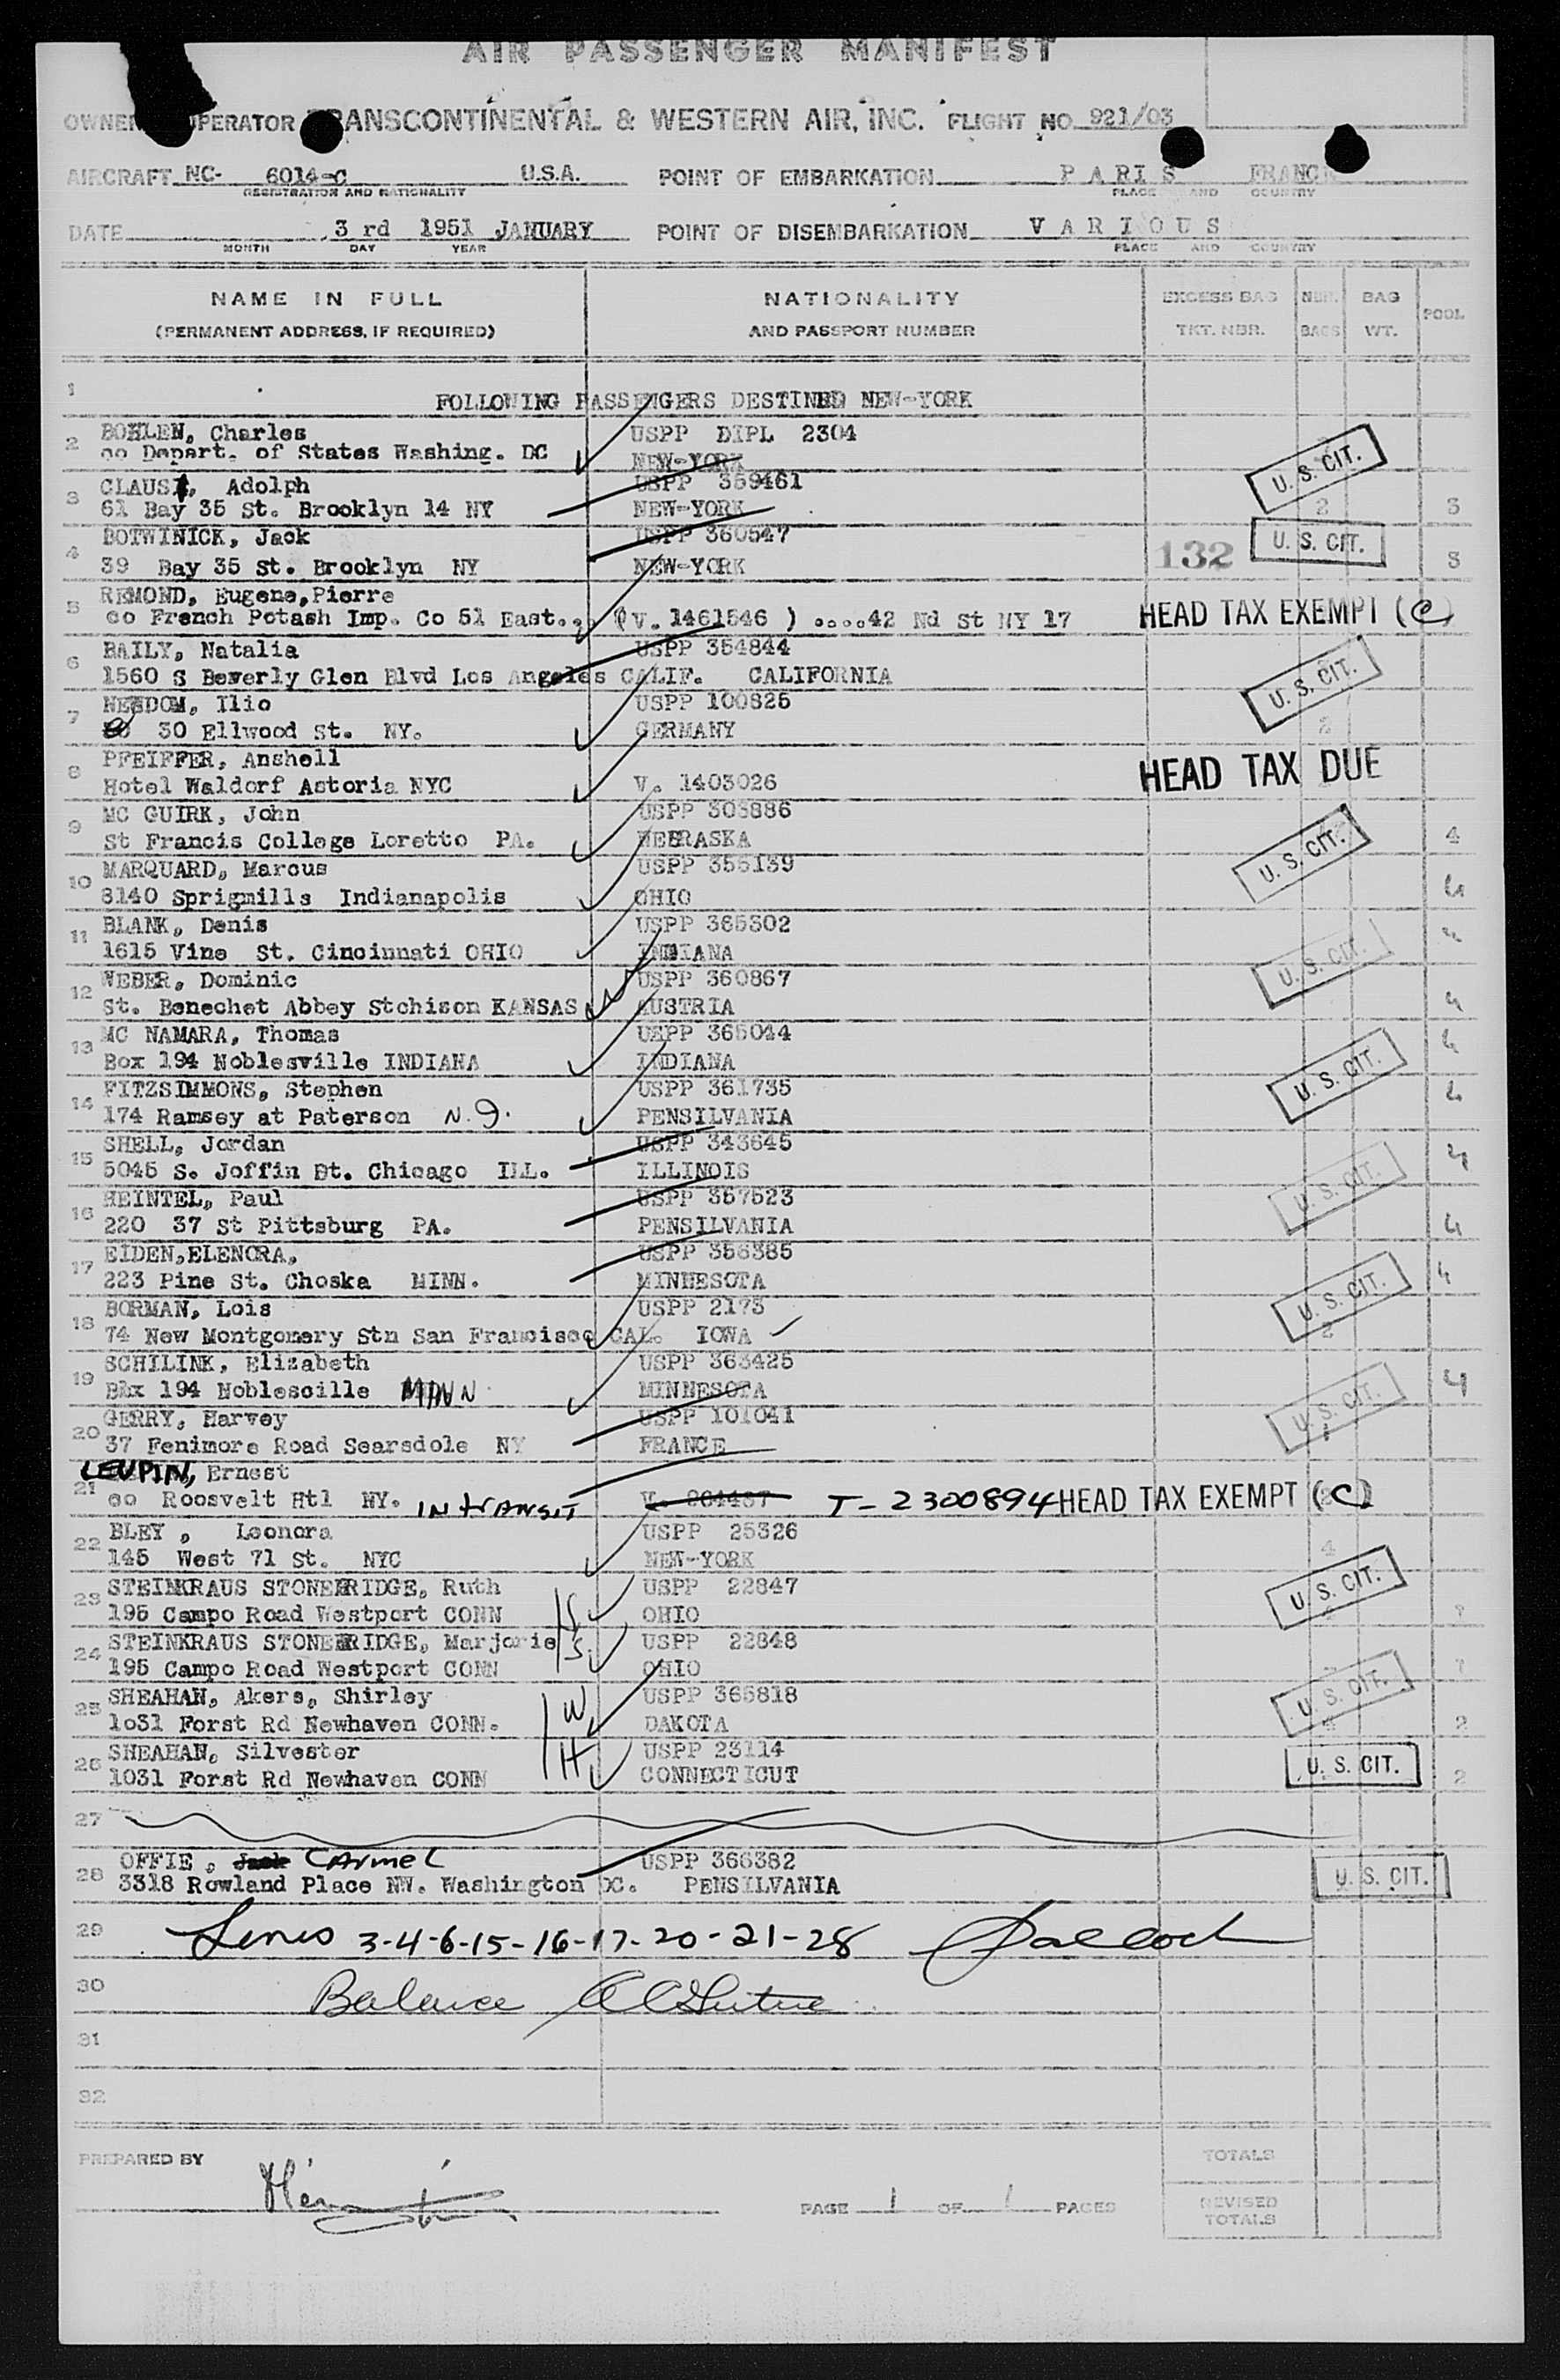 AIR PASSENGER MANIFEST
OWNER OPERATOR TRANSCONTINENTAL & WESTERN AIR, INC. FLIGHT NO 921/03
AIRCRAFT NC- 6014-C U.S.A. POINT OF EMBARKATION PARIS FRANC
REGISTRATION AND NATIONALITY PLACE AND COUNTRY
DATE 3 rd 1951 JANUARY POINT OF DISEMBARKATION VARIOUS
MONTH DAY YEAR PLACE AND COUNTRY
NAME IN FULL NATIONALITY EXCESS BAG NBR. BAG POOL
(PERMANENT ADDRESS, IF REQUIRED) AND PASSPORT NUMBER TKT. NBR. BAGS WT.
1
FOLLOWING PASSENGERS DESTINED NEW-YORK
2 BOHLEN, Charles USPP DIPL 2304
co Depart. of States Washing. DC NEW-YORK U. S. CIT.
3 CLAUSI, Adolph USPP 359461
61 Bay 35 St. Brooklyn 14 NY NEW-YORK 2 3
4 BOTWINICK, Jack USPP 360547 U. S. CIT.
39 Bay 35 St. Brooklyn NY NEW-YORK 132 3
5 REMOND, Eugene,Pierre
co French Potash Imp. Co 51 East.. (V. 1461546 ) ....42 Nd St NY 17 HEAD TAX EXEMPT (C)
6 BAILY, Natalia USPP 354844
1560 S Beverly Glen Blvd Los Angeles CALIF. CALIFORNIA U. S. CIT.
7 NEEDOM, Ilio USPP 100825
30 Ellwood St. NY. GERMANY 2
8 PFEIFFER, Anshell HEAD TAX DUE
Hotel Waldorf Astoria NYC V. 1403026
9 MC GUIRK, John USPP 303886
St Francis College Loretto PA. NEBRASKA U. S. CIT. 4
10 MARQUARD, Marcus USPP 356139
8140 Sprigmills Indianapolis OHIO 4
11 BLANK, Denis USPP 365302
1615 Vine St. Cincinnati OHIO INDIANA U. S. CIT. 4
12 WEBER, Dominic USPP 360867
St. Benechet Abbey Stchison KANSAS AUSTRIA 4
13 MC NAMARA, Thomas USPP 365044
Box 194 Noblesville INDIANA INDIANA U. S. CIT. 4
14 FITZSIMMONS, Stephen USPP 361735
174 Ramsey at Paterson N.J. PENSILVANIA 4
15 SHELL, Jordan USPP 343645
5045 S. Joffin Dt. Chicago ILL. ILLINOIS U. S. CIT. 4
16 HEINTEL, Paul USPP 357523
220 37 St Pittsburg PA. PENSILVANIA 4
17 EIDEN,ELENORA, USPP 356385
223 Pine St. Choska MINN. MINNESOTA U. S. CIT. 4
18 BORMAN, Lois USPP 2173
74 New Montgomery Stn San Francisco CAL. IOWA 2
19 SCHILINK, Elizabeth USPP 363425
Bkx 194 Noblescille MINN. MINNESOTA U. S. CIT. 4
20 GERRY, Harvey USPP 101041
37 Fenimore Road Searsdole NY FRANCE
21 LEUPIN, Ernest
co Roosvelt Htl NY. IN TRANSIT V. 264487 T-2300894 HEAD TAX EXEMPT (C)
22 BLEY , Leonora USPP 25326
145 West 71 St. NYC NEW-YORK 4
23 STEINKRAUS STONEBRIDGE, Ruth USPP 22847 U. S. CIT.
195 Campo Road Westport CONN S OHIO ?
24 STEINKRAUS STONEBRIDGE, Marjorie S. USPP 22848
195 Campo Road Westport CONN OHIO ?
25 SHEAHAN, Akers, Shirley W USPP 365818 U. S. CIT.
1o31 Forst Rd Newhaven CONN. DAKOTA 2
26 SHEAHAN, Silvester H USPP 23114 U. S. CIT.
1031 Forst Rd Newhaven CONN CONNECTICUT 2
27
28 OFFIE , Jack CArmeL USPP 366382
3318 Rowland Place NW. Washington DC. PENSILVANIA U. S. CIT.
29 Lines 3-4-6-15-16-17-20-21-28
30 Balance
31
32
PREPARED BY TOTALS
PAGE 1 OF 1 PAGES REVISED TOTALS